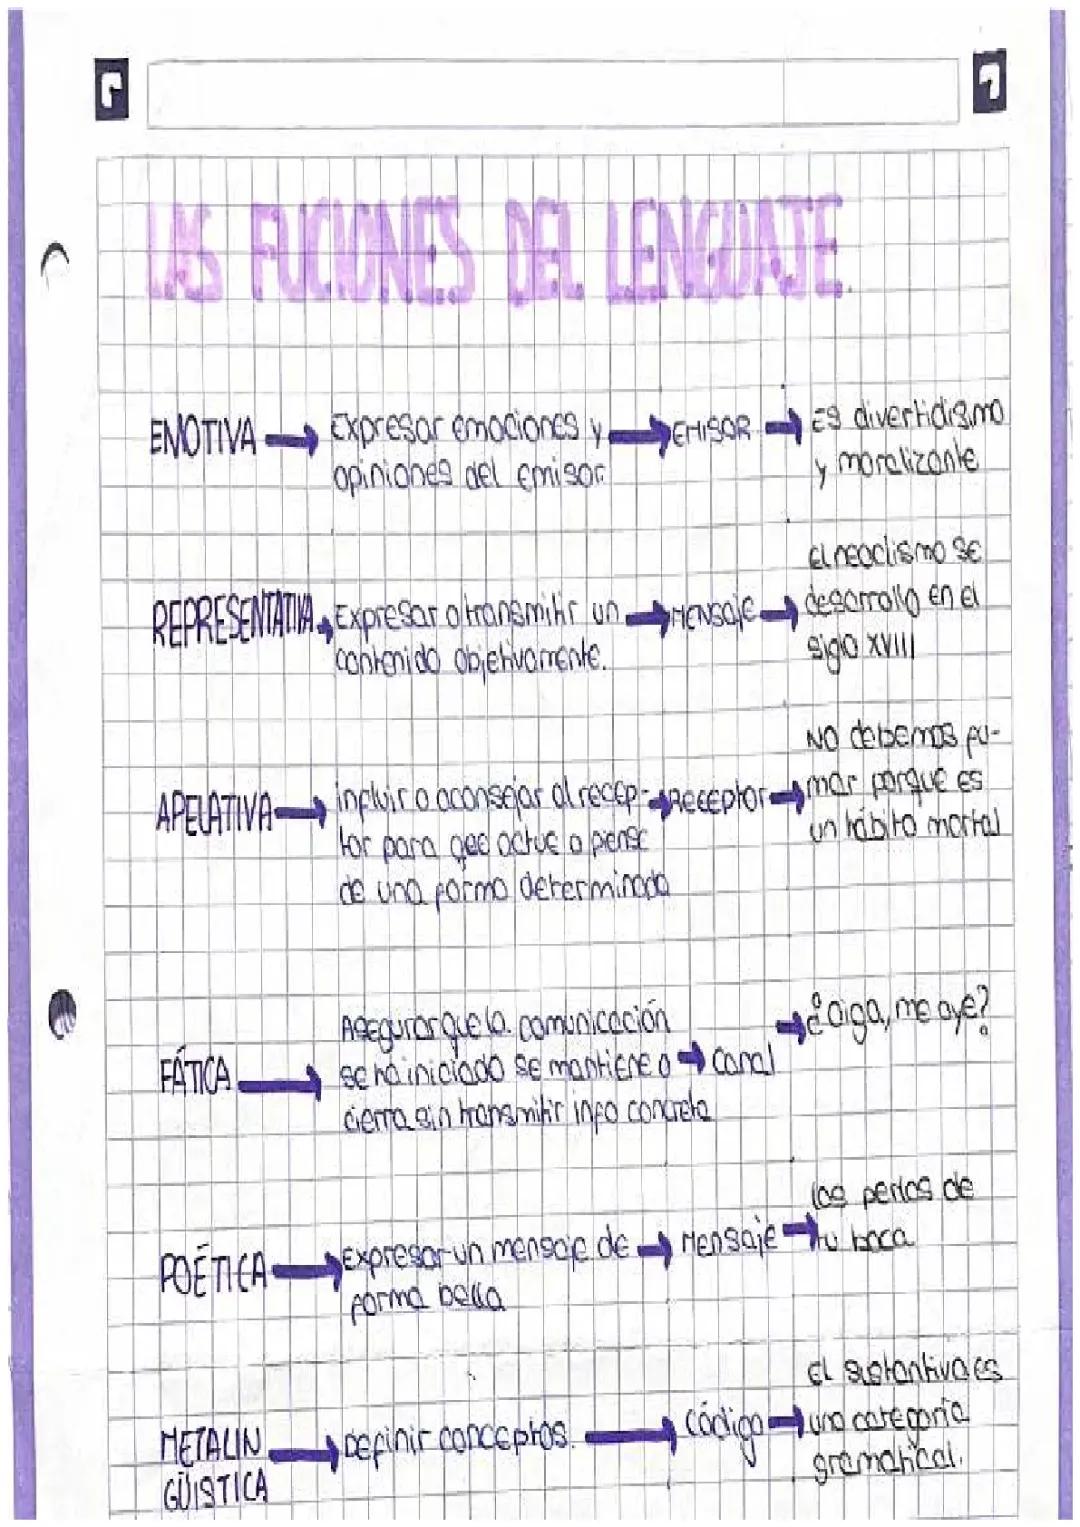 LAS FUCIONES DEL LENGUAJE.
EMOTIVA → Expresar emociones y → EMISOR → Es divertidismo
opiniones del emisor. y moralizante
El neoclismo se
REPRESENTATIVA → Expresar o transmitir un → MENSaje → desarrollo en el
contenido objetivamente. siglo XVIII
NO debemos fu-
APELATIVA → influir o aconsejar al recep- → Receptor → mar porque es
tor para que actue o pense un hábito mortal
de una forma determinada
Asegurar que la comunicación → ¿oiga, me oye?
FÁTICA → se ha iniciado se mantiene o → canal
cierra sin transmitir info concreta
las perlas de
POÉTICA → Expresar un mensaje de → Mensaje → tu boca
forma bella
El sustantivo es
METALIN → Definir conceptos. → código → una categoría
GÜISTICA gramatical.